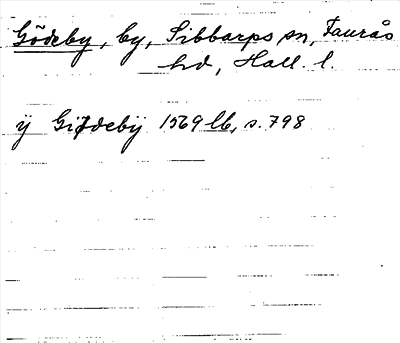 Gödeby, by, Sibbarps sn, Faurås
hd, Hall. l.
ÿ Giödebÿ 1569 lb, s. 798